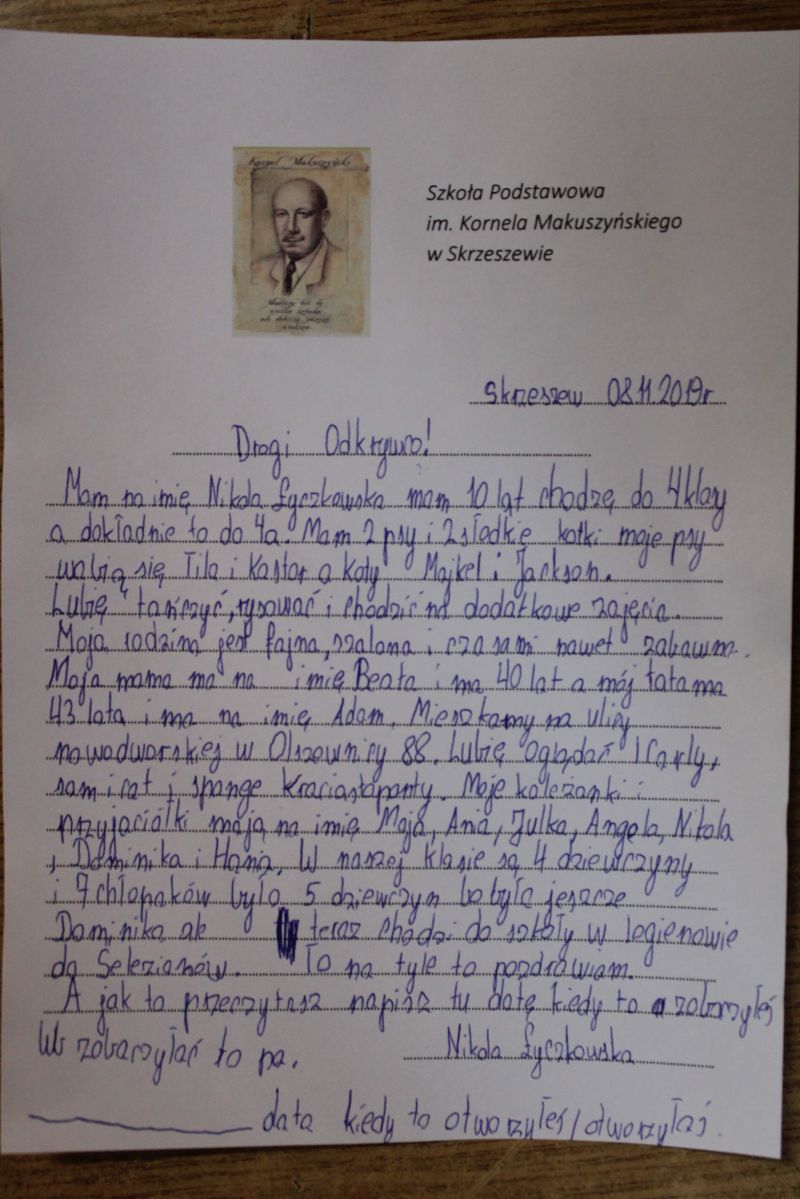 Kornel Makuszyński
Szkoła Podstawowa
im. Kornela Makuszyńskiego
w Skrzeszewie
Skrzeszew 08.11.2019r
Drogi Odkrywco!
Mam na imię Nikola Łyczkowska mam 10 lat chodzę do 4 klasy
a dokładnie to do 4a. Mam 2 psy i 2 słodkię kotki moje psy
wabią się Tila i Kastor a koty Majkel i Jackson.
Lubię tańczyć, rysować i chodzić na dodatkowe zajęcia.
Moja rodzina jest fajna, szalona i czasami nawet zabawna.
Moja mama ma na imię Beata i ma 40 lat a mój tata ma
43 lata i ma na imię Adam. Mieszkamy na ulicy
nowodworskiej w Olszownicy 88. Lubię oglądać ICarly,
sam i cat i spange kraciastopanty. Moje koleżanki i
przyjaciałki mają na imię Maja, Ania, Julka, Angela, Nikola
, Dominika i Hania. W naszej klasie są 4 dziewczyny
i 7 chłopaków było 5 dziewczyn bo była jeszcze
Dominika ale teraz chodzi do szkoły w legionowie
do Selezianów. To na tyle to pozdrawiam.
A jak to przeczytasz napisz tu datę kiedy to zobaczyłeś
lub zobaczyłaś to pa. Nikola Łyczkowska
data kiedy to otworzyłeś/otworzyłaś.